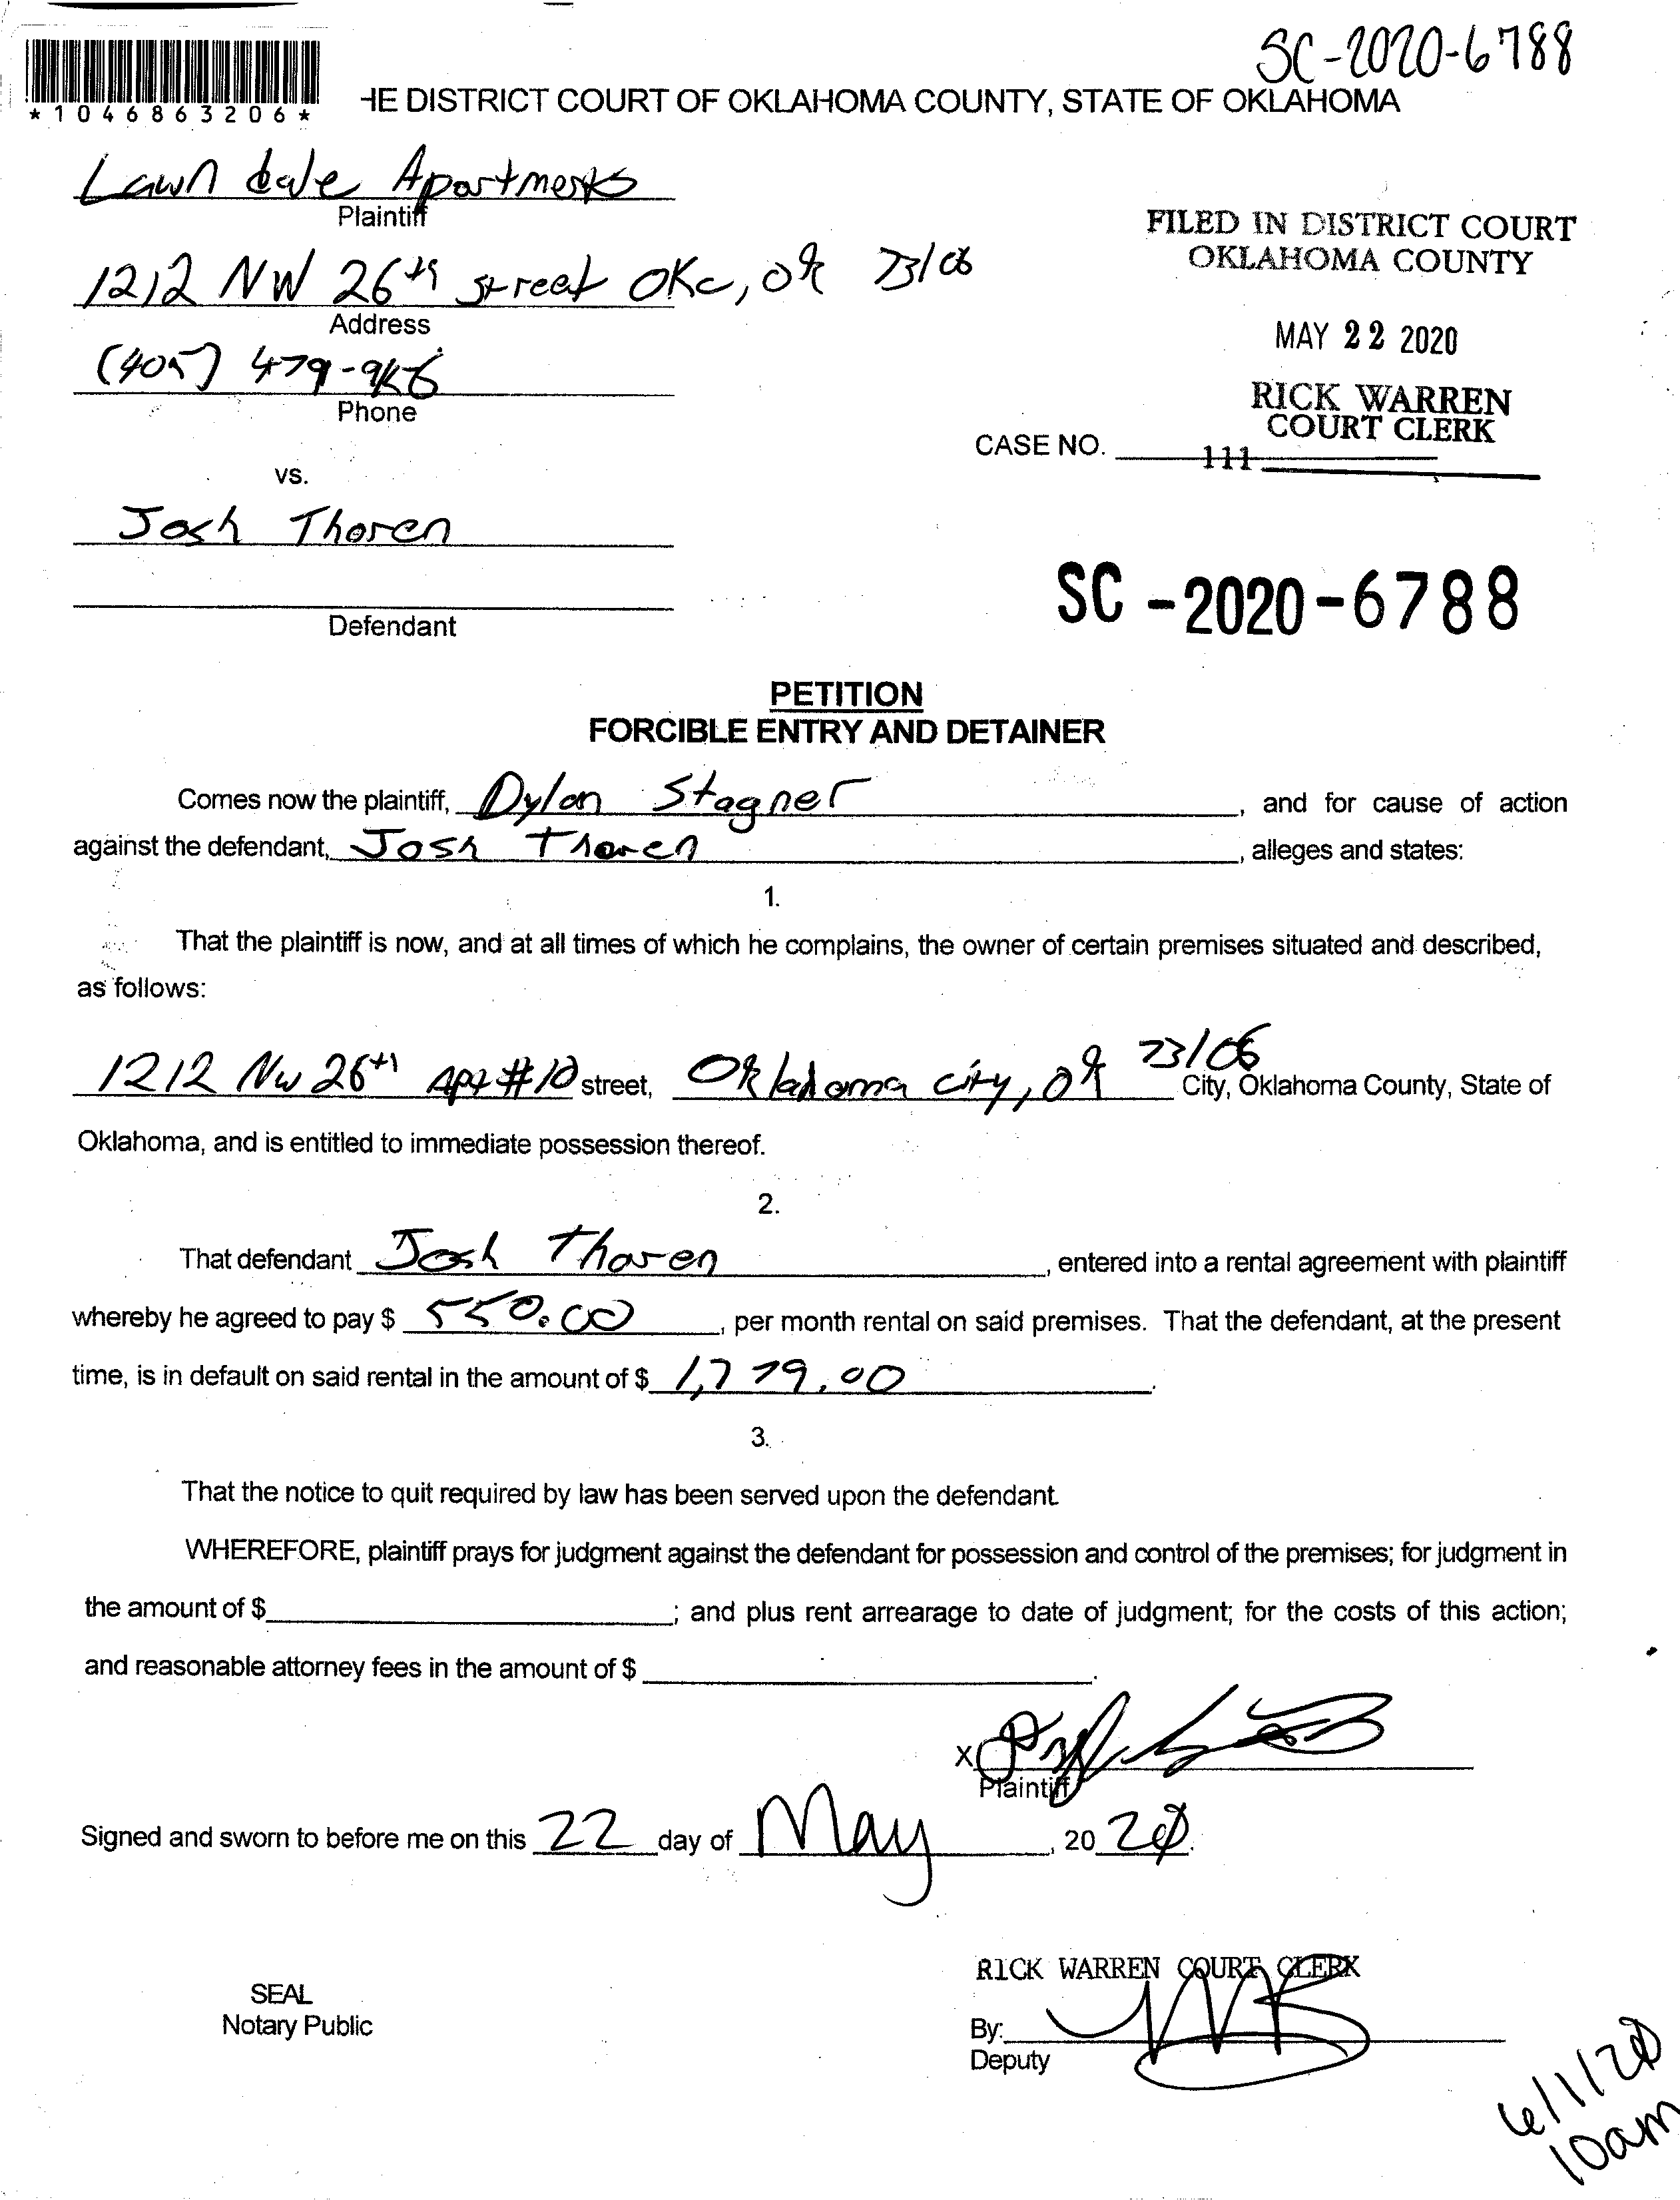 SC-2020-6788
*1046863206*
HE DISTRICT COURT OF OKLAHOMA COUNTY, STATE OF OKLAHOMA
Lawn dale Apartments
Plaintiff
FILED IN DISTRICT COURT
OKLAHOMA COUNTY
1212 NW 26th street OKC, OK 73106
Address
MAY 22 2020
(405) 479-
Phone
RICK WARREN
COURT CLERK
CASE NO.
111
vs.
Josh Thoren
SC-2020-6788
Defendant
PETITION
FORCIBLE ENTRY AND DETAINER
Comes now the plaintiff, Dylan Stagner, and for cause of action
against the defendant, Josh Thoren, alleges and states:
1.
That the plaintiff is now, and at all times of which he complains, the owner of certain premises situated and described,
as follows:
1212 NW 26th Apt #10 street, Oklahoma city, OK 73106 City, Oklahoma County, State of
Oklahoma, and is entitled to immediate possession thereof.
2.
That defendant Josh Thoren, entered into a rental agreement with plaintiff
whereby he agreed to pay $ 550.00, per month rental on said premises. That the defendant, at the present
time, is in default on said rental in the amount of $ 1,779.00.
3.
That the notice to quit required by law has been served upon the defendant.
WHEREFORE, plaintiff prays for judgment against the defendant for possession and control of the premises; for judgment in
the amount of $ ; and plus rent arrearage to date of judgment; for the costs of this action;
and reasonable attorney fees in the amount of $ .
X
Plaintiff
Signed and sworn to before me on this 22 day of May, 2020.
RICK WARREN COURT CLERK
SEAL
Notary Public
By:
Deputy
6/1/20
10am